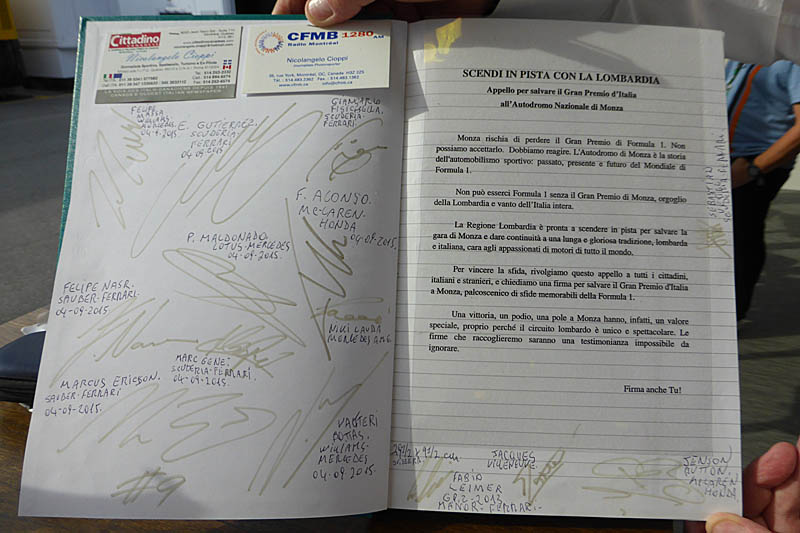 Cittadino
CANADESE
Nicolangelo Cioppi
CFMB 1280 AM
Radio Montréal
Nicolangelo Cioppi
35, rue York, Montréal, QC, Canada H3Z 2Z5
FELIPE
MASSA
WILLIAMS
04-9-2015
E. GUTIERREZ
SCUDERIA
FERRARI
04-09-2015
GIANCARLO
FISICHELLA
SCUDERIA
FERRARI
F. ALONSO.
MC-LAREN-
HONDA
04-09-2015.
P. MALDONADO
LOTUS-MERCEDES
04-09-2015.
FELIPE NASR.
SAUBER-FERRARI-
04-09-2015.
NIKI LAUDA
MERCEDES A.M.G.
MARC GENE:
SCUDERIA-FERRARI-
04-09-2015.
MARCUS ERICSON.
SAUBER-FERRARI
04-09-2015.
VALTTERI
BOTTAS.
WILLIAMS-
MERCEDES
04-09-2015.
#9
SCENDI IN PISTA CON LA LOMBARDIA
Appello per salvare il Gran Premio d'Italia
all'Autodromo Nazionale di Monza
Monza rischia di perdere il Gran Premio di Formula 1. Non
possiamo accettarlo. Dobbiamo reagire. L'Autodromo di Monza è la storia
dell'automobilismo sportivo: passato, presente e futuro del Mondiale di
Formula 1.
Non può esserci Formula 1 senza il Gran Premio di Monza, orgoglio
della Lombardia e vanto dell'Italia intera.
La Regione Lombardia è pronta a scendere in pista per salvare la
gara di Monza e dare continuità a una lunga e gloriosa tradizione, lombarda
e italiana, cara agli appassionati di motori di tutto il mondo.
Per vincere la sfida, rivolgiamo questo appello a tutti i cittadini,
italiani e stranieri, e chiediamo una firma per salvare il Gran Premio d'Italia
a Monza, palcoscenico di sfide memorabili della Formula 1.
Una vittoria, un podio, una pole a Monza hanno, infatti, un valore
speciale, proprio perché il circuito lombardo è unico e spettacolare. Le
firme che raccoglieremo saranno una testimonianza impossibile da
ignorare.
Firma anche Tu!
SEBASTIEN
JACQUES
VILLENEUVE.
FABIO
LEIMER
GP.2-2013
MANOR-FERRARI-
JENSON
BUTTON.
MCLAREN
HONDA